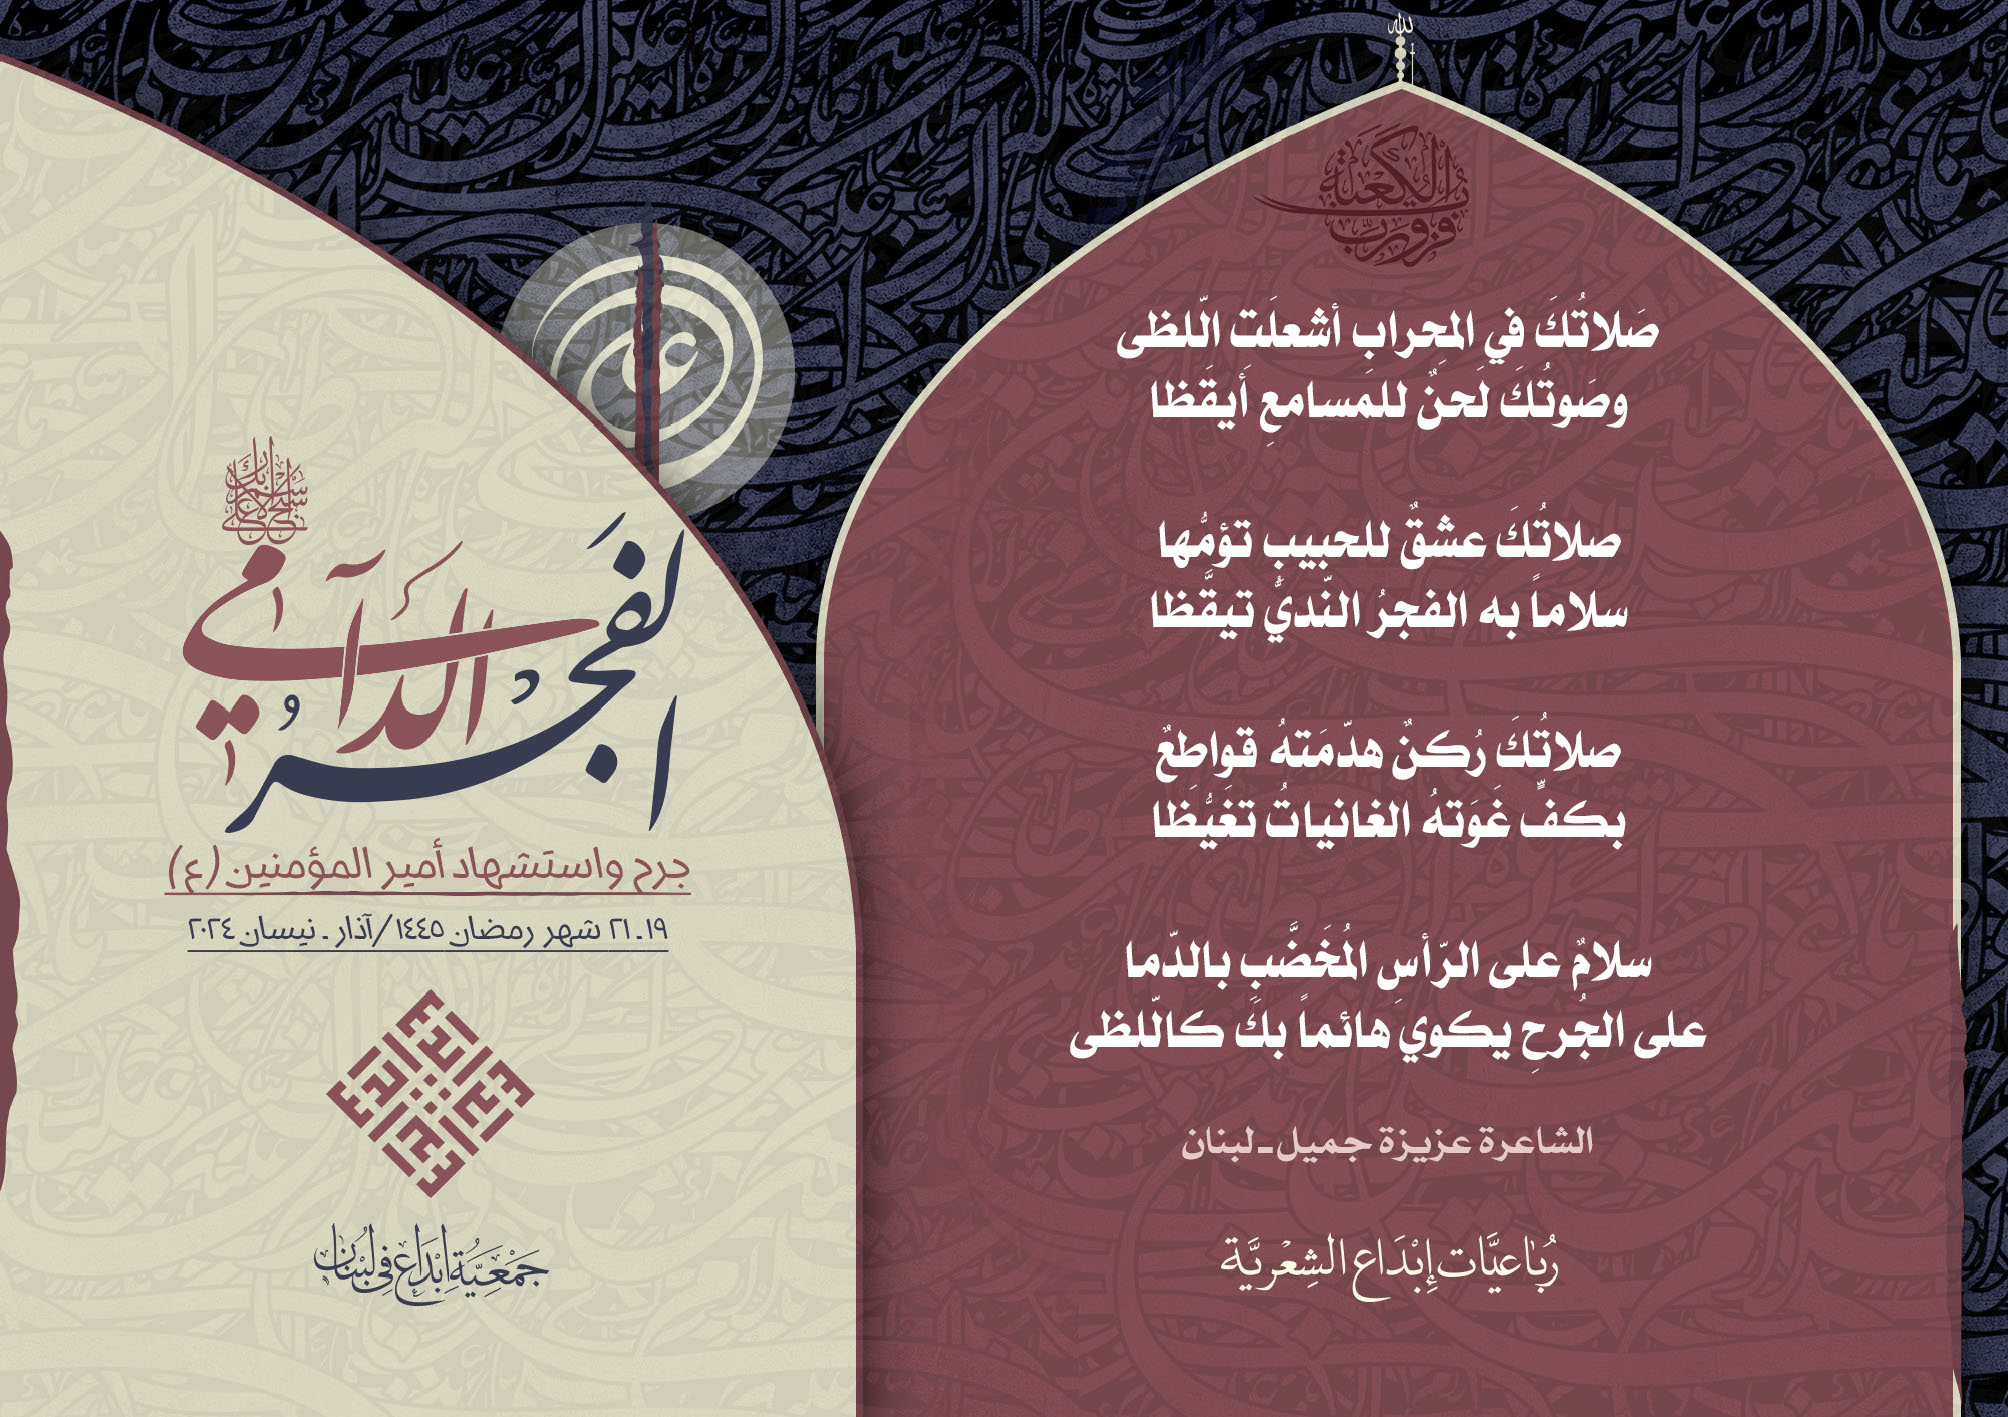 الله
فزت ورب الكعبة
صَلاتُكَ في المِحرابِ أشعلَتَ الّلظى
وصَوتُكَ لَحنٌ للمسامعِ أيقَظا
صلاتُكَ عشقٌ للحبيبِ تؤمُّها
سلاماً به الفجرُ النّديُّ تيقَّظا
صلاتُكَ رُكنٌ هدّمَتهُ قواطعٌ
بكفٍّ غَوَتهُ الغانياتُ تغَيُّظَا
سلامٌ على الرّأسِ المُخَضَّبِ بالدّما
على الجُرحِ يكوي هائماً بكَ كالّلظى
الشاعرة عزيزة جميل - لبنان
رُبَاعيَّات إِبْدَاع الشِعريَّة
علي
سبح اسم ربك الأعلى
الفَجرُ الدَّامي
جرح واستشهاد أمير المؤمنين (ع)
١٩ - ٢١ شهر رمضان ١٤٤٥ / آذار - نيسان ٢٠٢٤
جَمْعِيَّة إِبْدَاع في لبْنَان